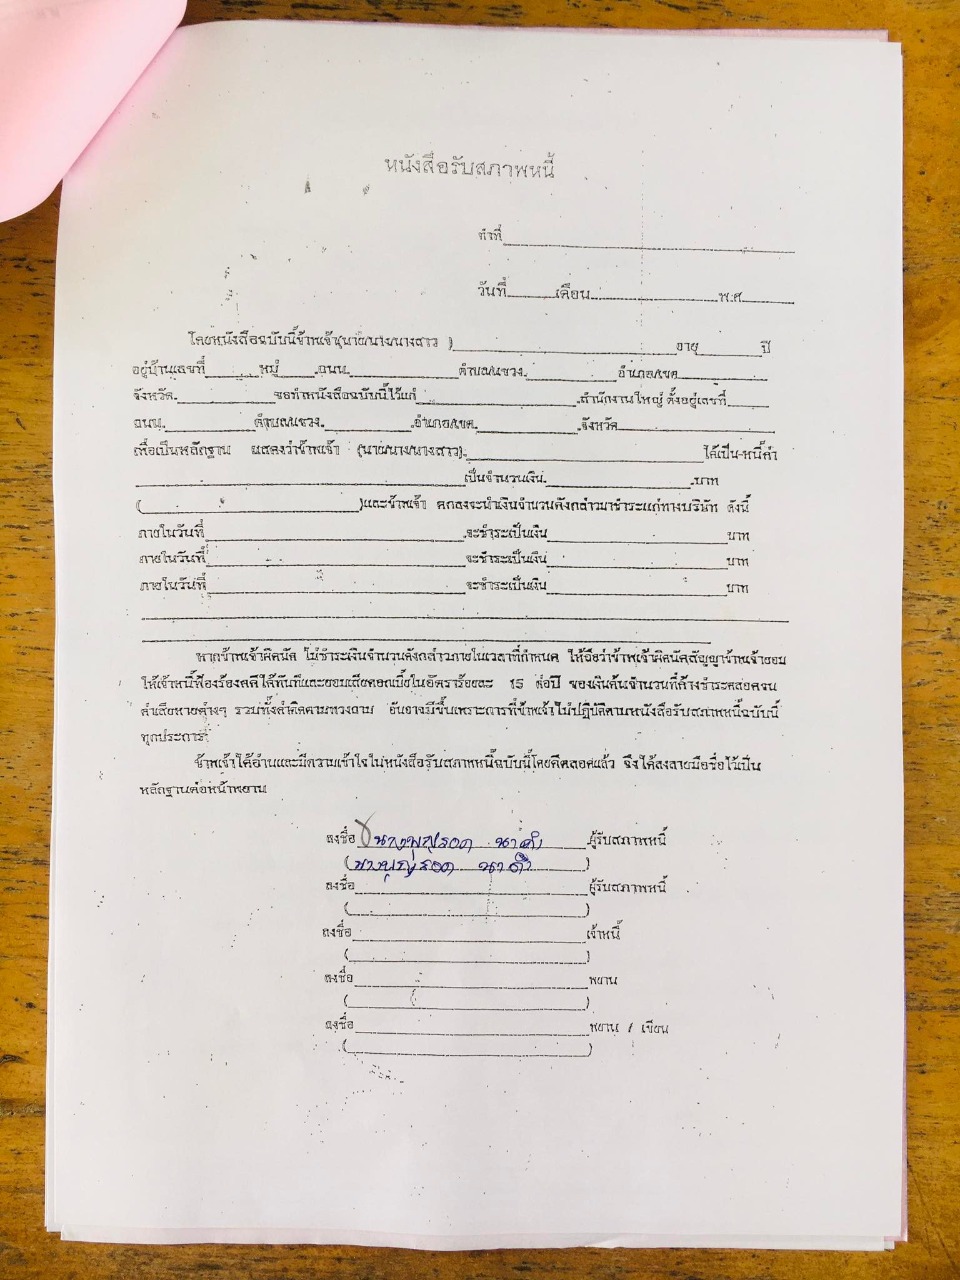 หนังสือรับสภาพหนี้
ทำที่
วันที่ เดือน พ.ศ.
โดยหนังสือฉบับนี้ข้าพเจ้า(นาย/นาง/นางสาว ) อายุ ปี
อยู่บ้านเลขที่ หมู่ ถนน ตำบล/แขวง อำเภอ/เขต
จังหวัด ขอทำหนังสือฉบับนี้ไว้แก่ สำนักงานใหญ่ ตั้งอยู่เลขที่
ถนน ตำบล/แขวง อำเภอ/เขต จังหวัด
เพื่อเป็นหลักฐาน แสดงว่าข้าพเจ้า (นาย/นาง/นางสาว) ได้เป็นหนี้ค่า
เป็นจำนวนเงิน บาท
( )และข้าพเจ้า ตกลงจะนำเงินจำนวนดังกล่าวมาชำระแก่ทางบริษัท ดังนี้
ภายในวันที่ จะชำระเป็นเงิน บาท
ภายในวันที่ จะชำระเป็นเงิน บาท
ภายในวันที่ จะชำระเป็นเงิน บาท
หากข้าพเจ้าผิดนัด ไม่ชำระเงินจำนวนดังกล่าวภายในเวลาที่กำหนด ให้ถือว่าข้าพเจ้าผิดนัดสัญญาข้าพเจ้ายอม
ให้เจ้าหนี้ฟ้องร้องคดีได้ทันทีและยอมเสียดอกเบี้ยในอัตราร้อยละ 15 ต่อปี ของเงินต้นจำนวนที่ค้างชำระตลอดจน
ค่าเสียหายต่างๆ รวมทั้งค่าติดตามทวงถาม อันอาจมีขึ้นเพราะการที่ข้าพเจ้าไม่ปฏิบัติตามหนังสือรับสภาพหนี้ฉบับนี้
ทุกประการ
ข้าพเจ้าได้อ่านและมีความเข้าใจในหนังสือรับสภาพหนี้ฉบับนี้โดยดีตลอดแล้ว จึงได้ลงลายมือชื่อไว้เป็น
หลักฐานต่อหน้าพยาน
ลงชื่อ นางบุญรอด นาคำ ผู้รับสภาพหนี้
(นางบุญรอด นาคำ )
ลงชื่อ ผู้รับสภาพหนี้
( )
ลงชื่อ เจ้าหนี้
( )
ลงชื่อ พยาน
( )
ลงชื่อ พยาน / เขียน
( )